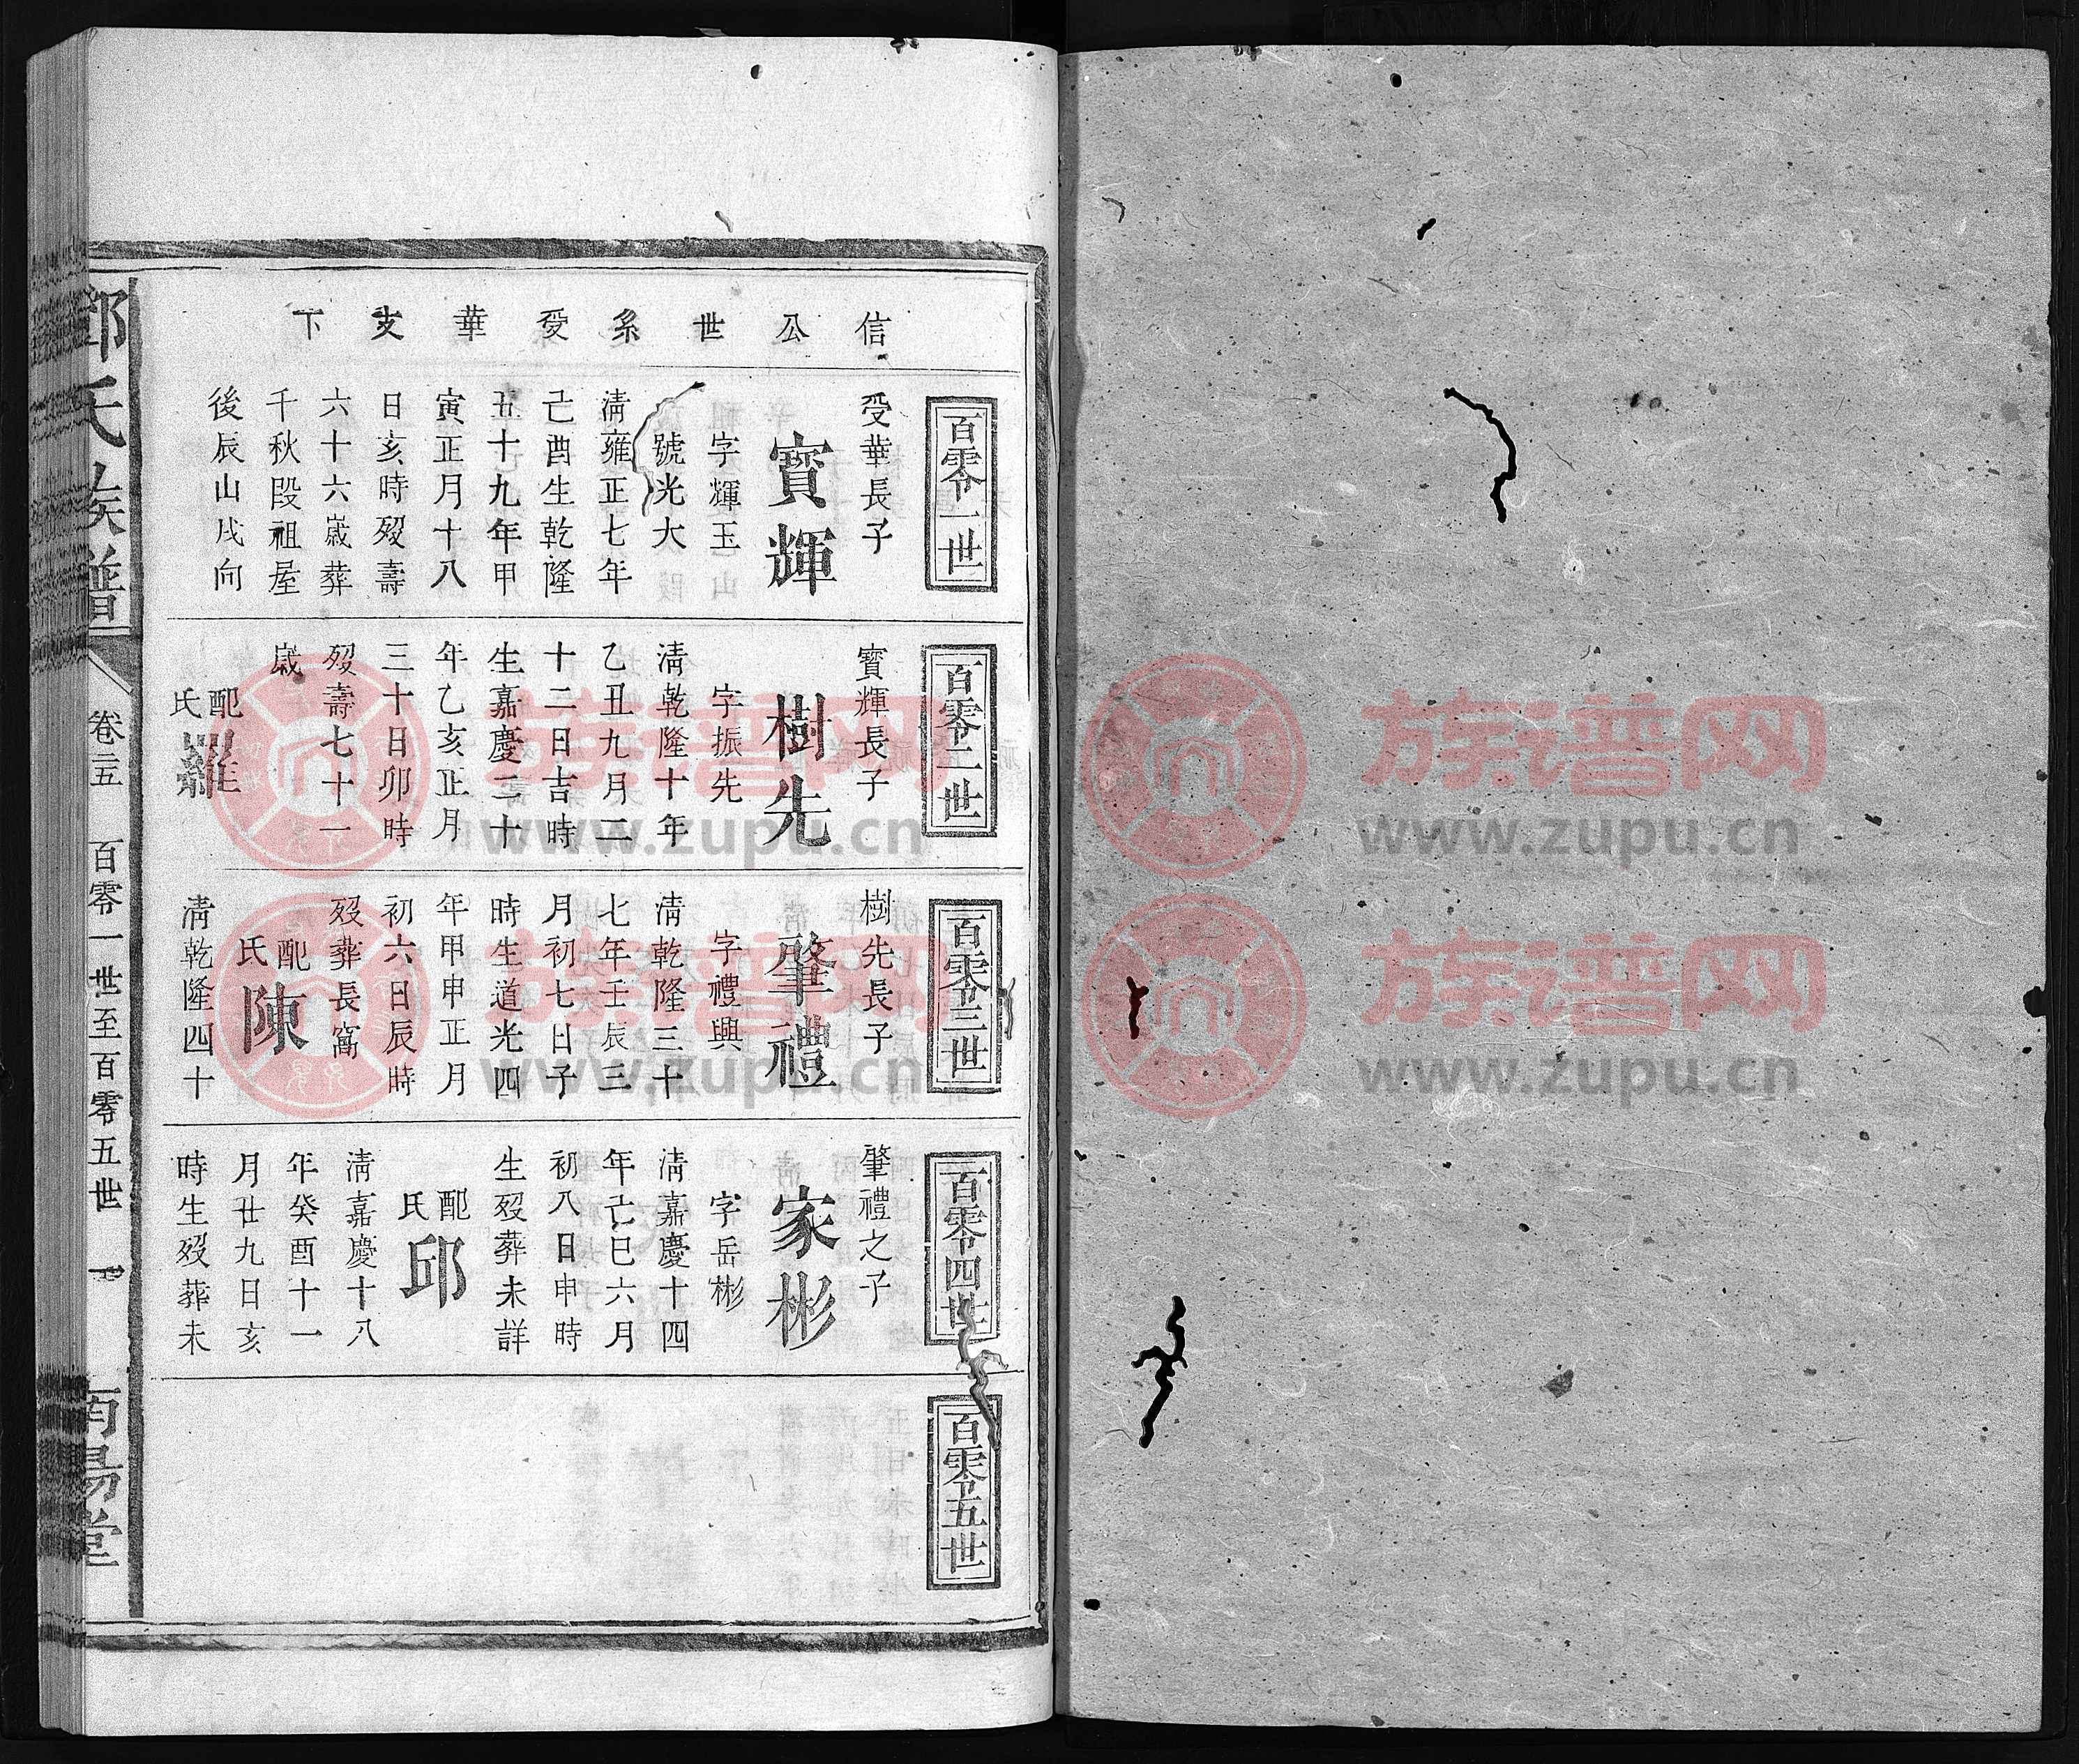 信公世系受華支下
百零一世
受華長子
寶輝
字輝玉
號光大
清雍正七年
己酉生乾隆
五十九年甲
寅正月十八
日亥時歿壽
六十六歲葬
千秋段祖屋
後辰山戌向
百零二世
寶輝長子
樹先
字振先
清乾隆十年
乙丑九月二
十二日吉時
生嘉慶二十
年乙亥正月
三十日卯時
歿壽七十一
歲
配
氏
羅
百零三世
樹先長子
肇禮
字禮興
清乾隆三十
七年壬辰三
月初七日子
時生道光四
年甲申正月
初六日辰時
歿葬長窩
配
氏
陳
清乾隆四十
百零四世
肇禮之子
家彬
字岳彬
清嘉慶十四
年己巳六月
初八日申時
生歿葬未詳
配
氏
邱
清嘉慶十八
年癸酉十一
月廿九日亥
時生歿葬未
百零五世
鄧氏族譜
卷三五
百零一世至百零五世
一
南陽堂
族谱网
www.zupu.cn
族谱网
www.zupu.cn
族谱网
www.zupu.cn
族谱网
www.zupu.cn